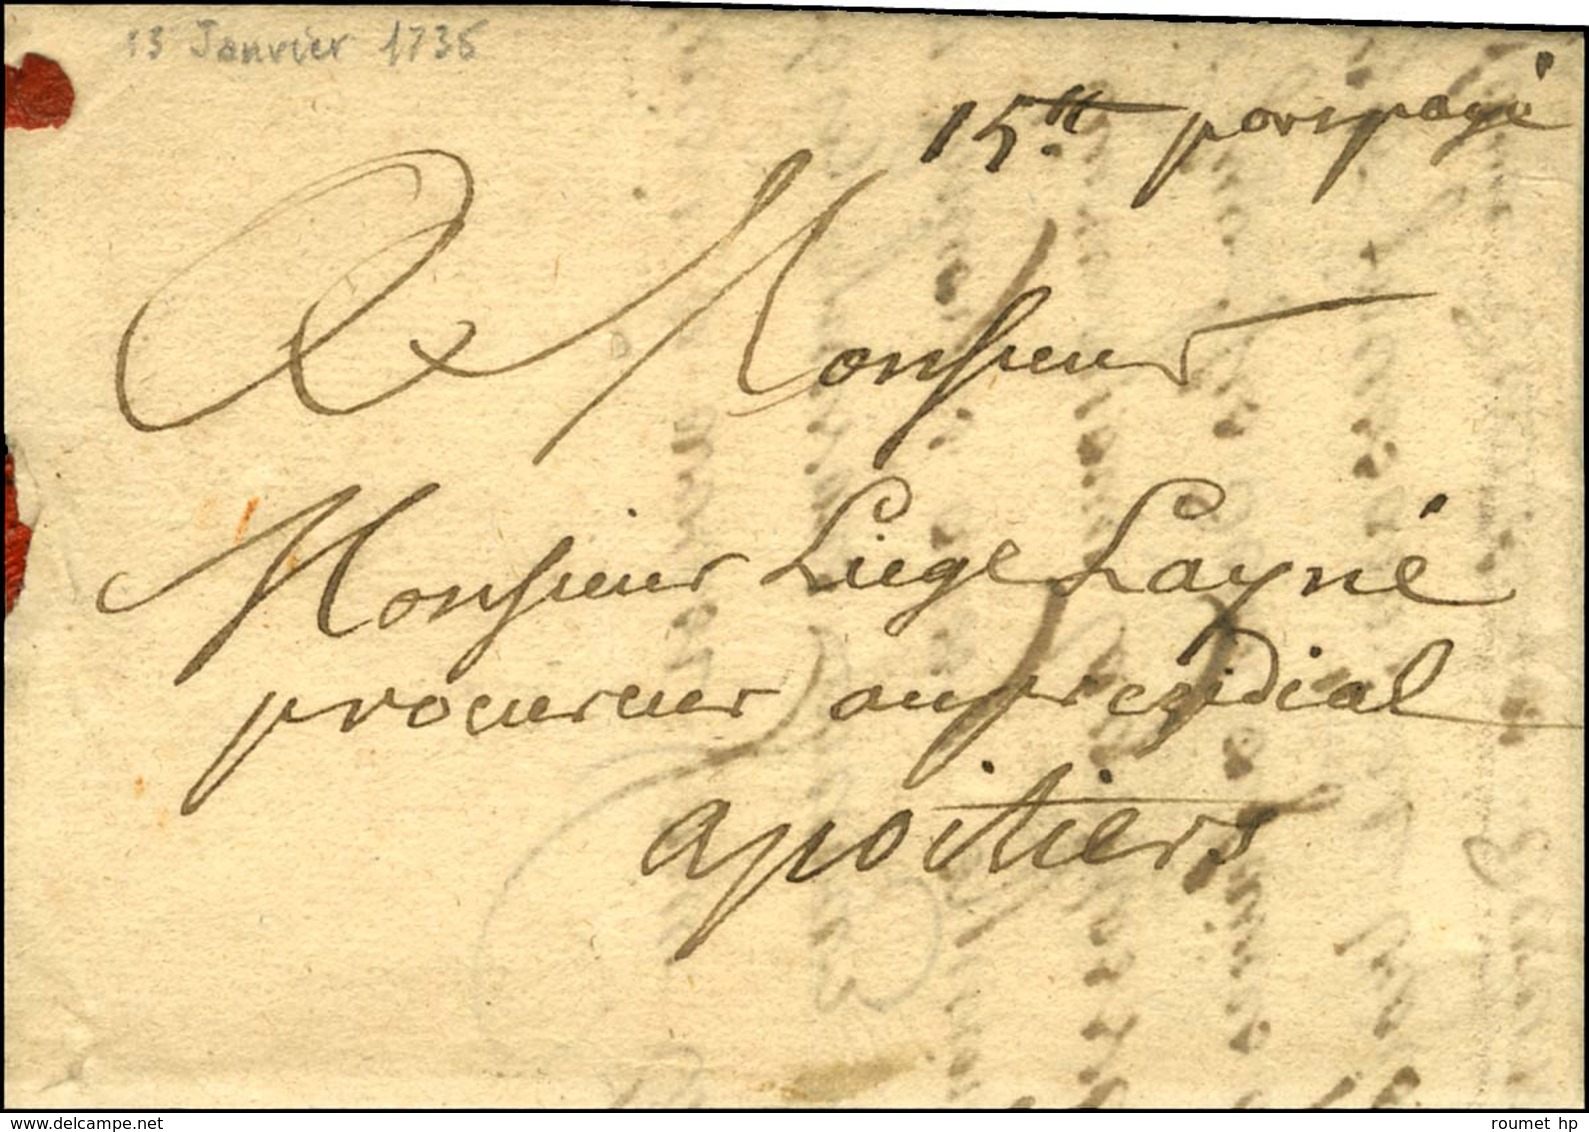 13 Janvier 1736
15tt porspayé
A Monsieur
Monsieur Liege Layné
procureur au presidial
a poitiers
www.delcampe.net
roumet hp